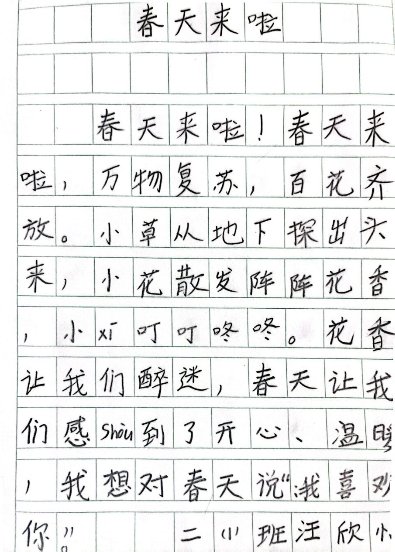 春天来啦
春天来啦！春天来
啦，万物复苏，百花齐
放。小草从地下探出头
来，小花散发阵阵花香
，小xī叮叮咚咚。花香
让我们醉迷，春天让我
们感shòu到了开心、温暖
，我想对春天说“：我喜欢
你”。 二（1）班汪欣小